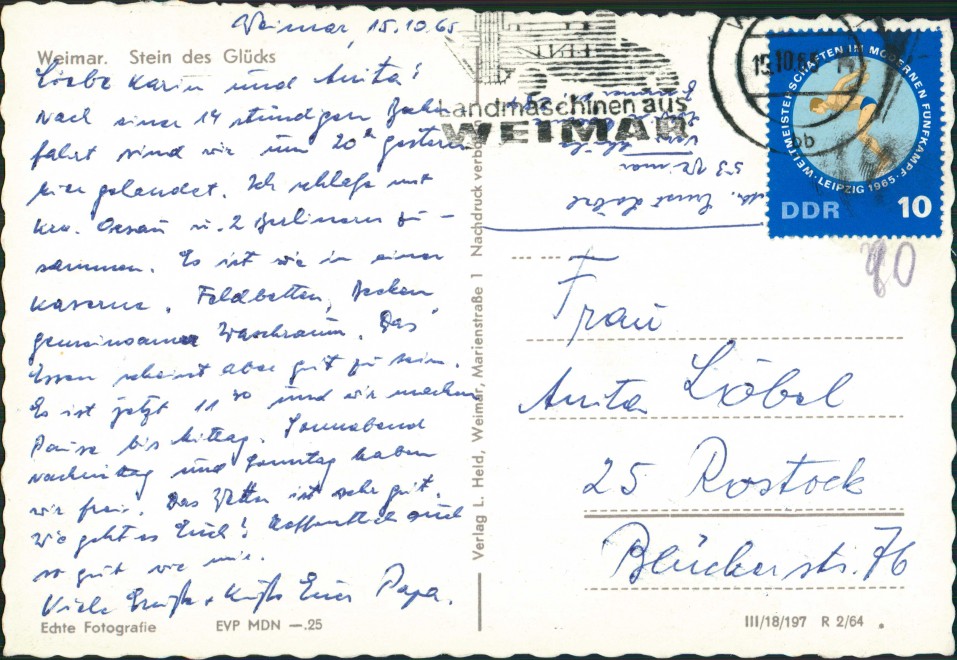 Weimar, 15.10.65
Weimar. Stein des Glücks
Liebe Karin und Anita!
Nach einer 14 stündigen Bahn-
fahrt sind wir um 20h gestern
hier gelandet. Ich schlafe mit
u. 2 Berlinern zu-
sammen. Es ist wie in einer
Kaserne. Feldbetten, Decken
gemeinsamer Waschraum. Das
Essen scheint aber gut zu sein.
Es ist jetzt 11 30 und wir machen
Pause bis Mittag. Sonnabend
nachmittag und Sonntag haben
wir frei. Das Wetter ist sehr gut.
Wie geht es Euch? Hoffentlich auch
so gut wie mir.
Viele Grüße + Küsse Euer Papa.
Echte Fotografie EVP MDN —.25
Verlag L. Held, Weimar, Marienstraße 1 Nachdruck verboten
Landmaschinen aus
WEIMAR
15.10.65
WELTMEISTERSCHAFTEN IM MODERNEN FÜNFKAMPF
LEIPZIG 1965
DDR 10
Ernst Löbel
53 Weimar
80
Frau
Anita Löbel
25 Rostock
Blücherstr. 76
III/18/197 R 2/64